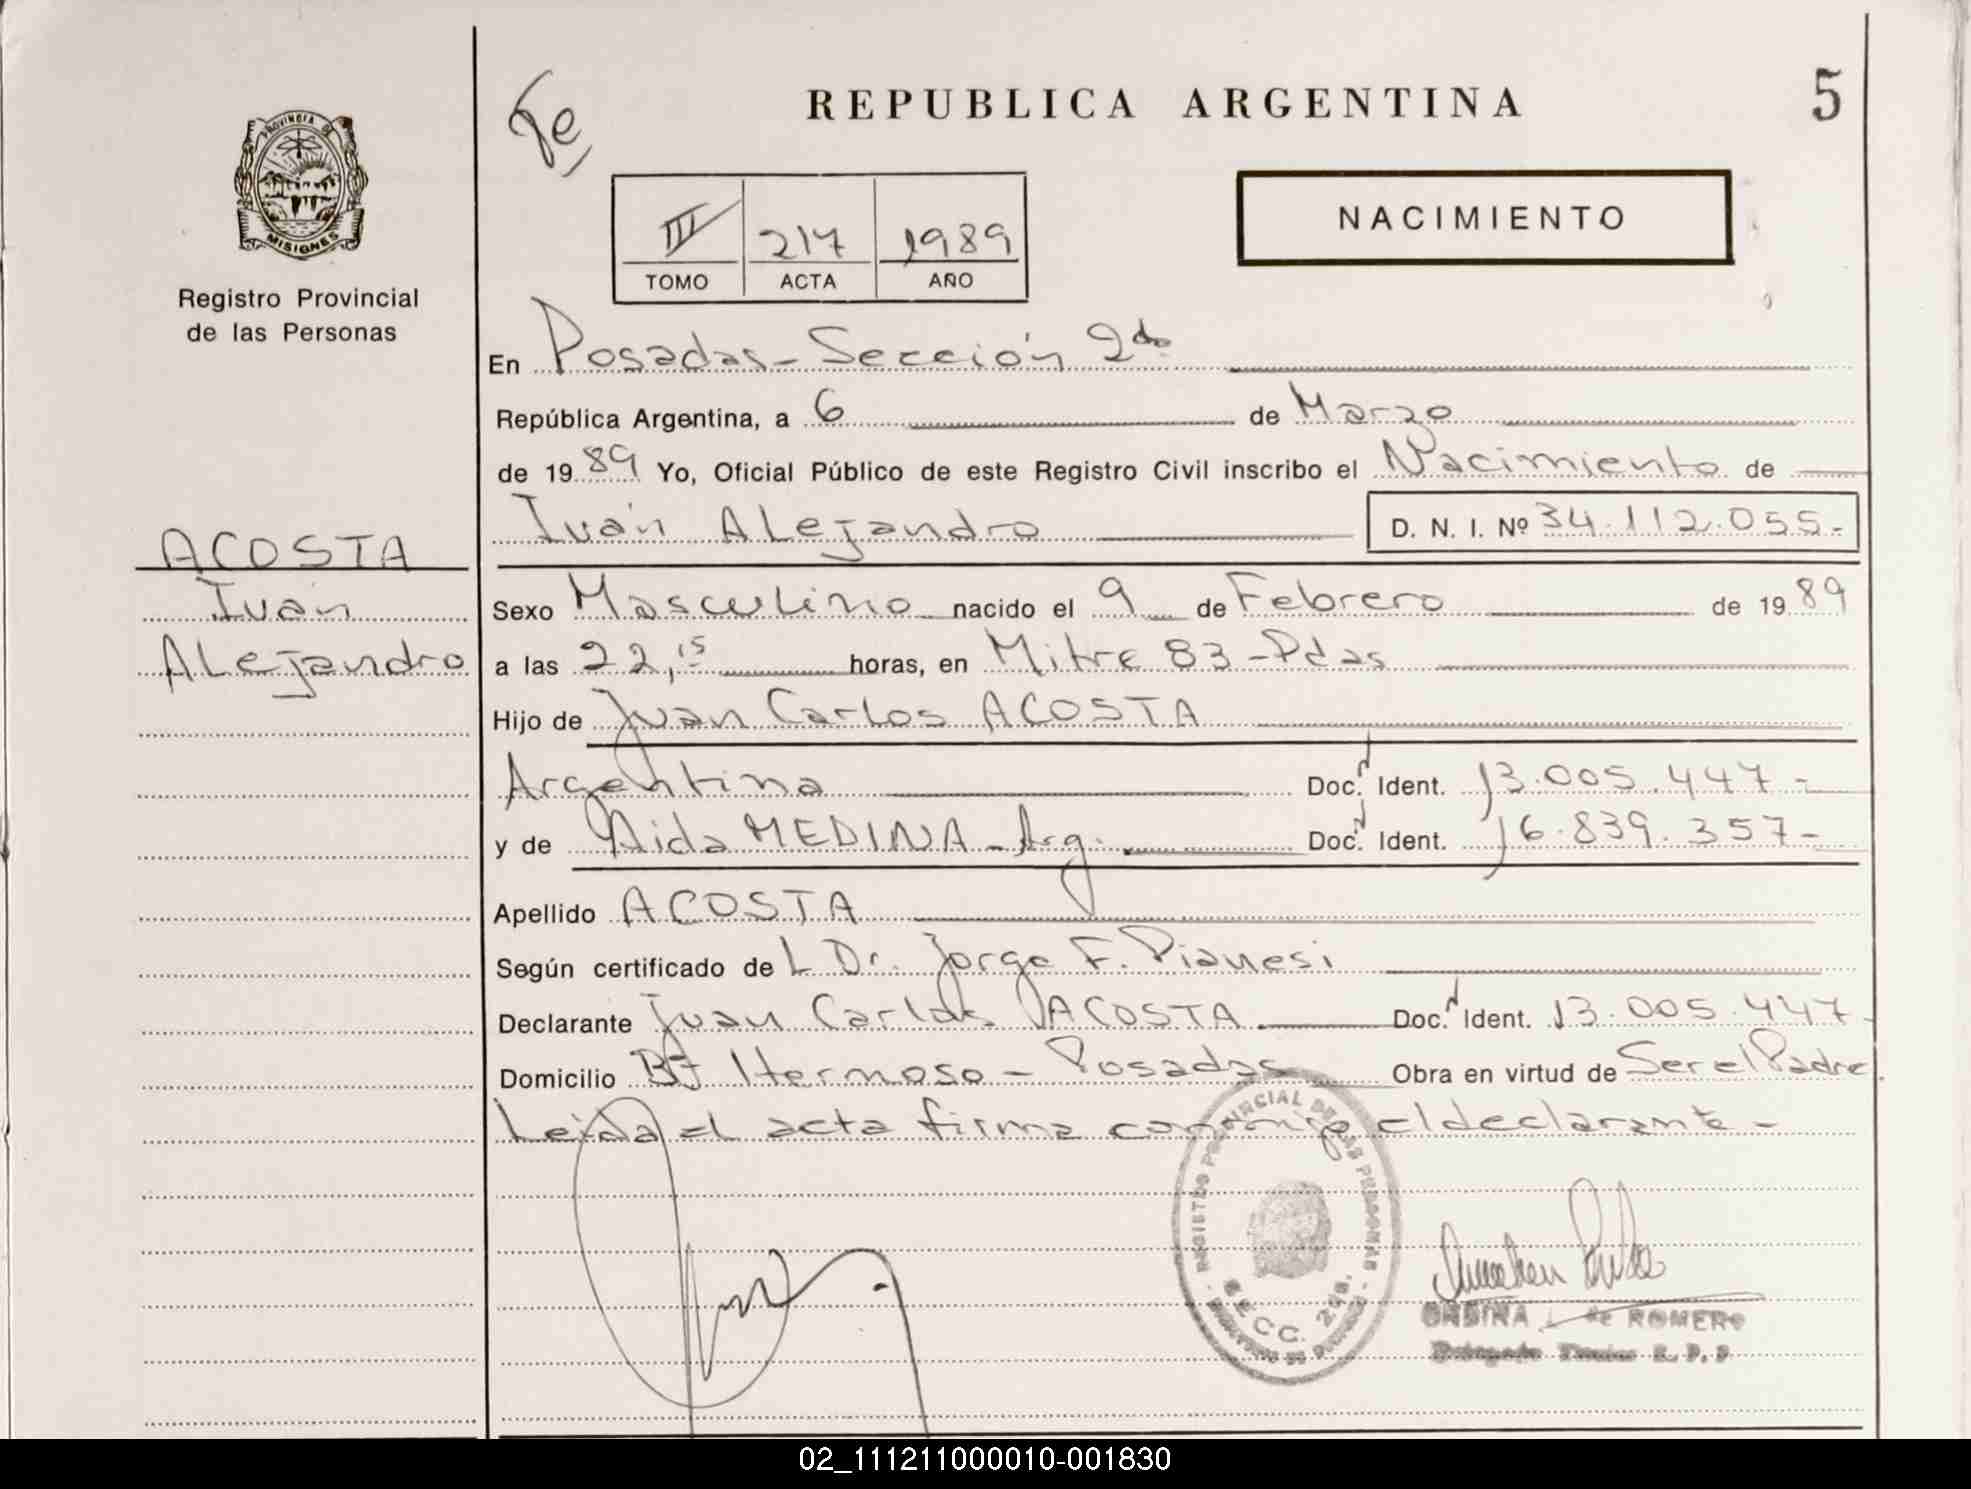 REPUBLICA ARGENTINA
5
PROVINCIA DE
MISIONES
Registro Provincial
de las Personas
III 217 1989
TOMO ACTA AÑO
NACIMIENTO
En Posadas - Sección 2da
República Argentina, a 6 de Marzo
de 1989 Yo, Oficial Público de este Registro Civil inscribo el Nacimiento de
Iván Alejandro D. N. I. Nº 34.112.055.-
ACOSTA
Iván
Alejandro
Sexo Masculino nacido el 9 de Febrero de 1989
a las 22,15 horas, en Mitre 83 - Pdas
Hijo de Juan Carlos ACOSTA
Argentina Doc. Ident. 13.005.447-
y de Aida MEDINA - Arg. Doc. Ident. 16.839.357-
Apellido ACOSTA
Según certificado de L Dr. Jorge F. Pianesi
Declarante Juan Carlos ACOSTA Doc. Ident. 13.005.447-
Domicilio Hermoso - Posadas Obra en virtud de Ser el Padre.
Leida el acta firma conmigo el declarante -
REGISTRO PROVINCIAL DE LAS PERSONAS
SECC. 2da.
de ROMERO
R. P. P
02_111211000010-001830